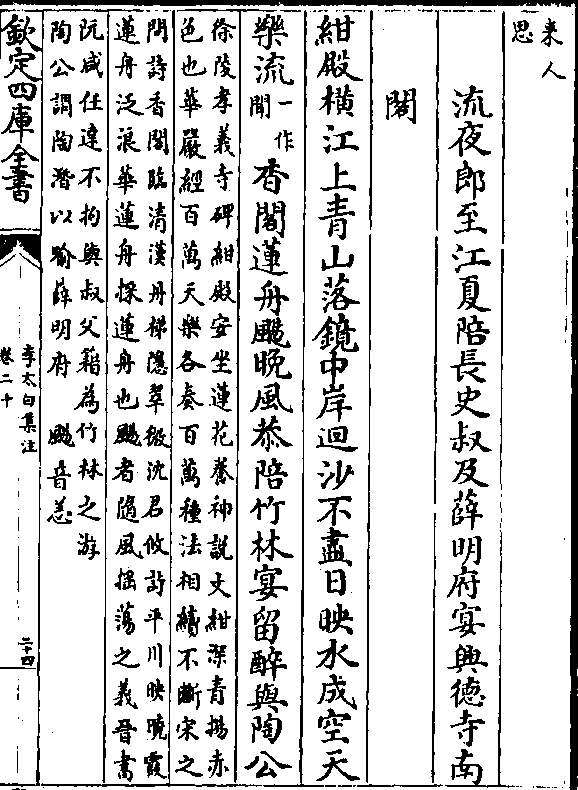 来人
思
流夜郎至江夏陪長史叔及薛明府宴興德寺南
閣
紺殿横江上青山落鏡中岸迴沙不盡日映水成空天
樂流一作聞香閣蓮舟颺晚風恭陪竹林宴留醉與陶公
徐陵孝義寺碑紺殿安坐蓮花養神説文紺深青揚赤
色也華嚴經百萬天樂各奏百萬種法相續不斷宋之
問詩香閣臨清漢丹梯隱翠微沈君攸詩平川映曉霞
蓮舟泛浪華蓮舟採蓮舟也颺者隨風揺蕩之義晉書
阮咸任達不拘與叔父籍為竹林之游
陶公謂陶潜以喻薛明府　颺音恙
欽定四庫全書
李太白集注
卷二十
二十四